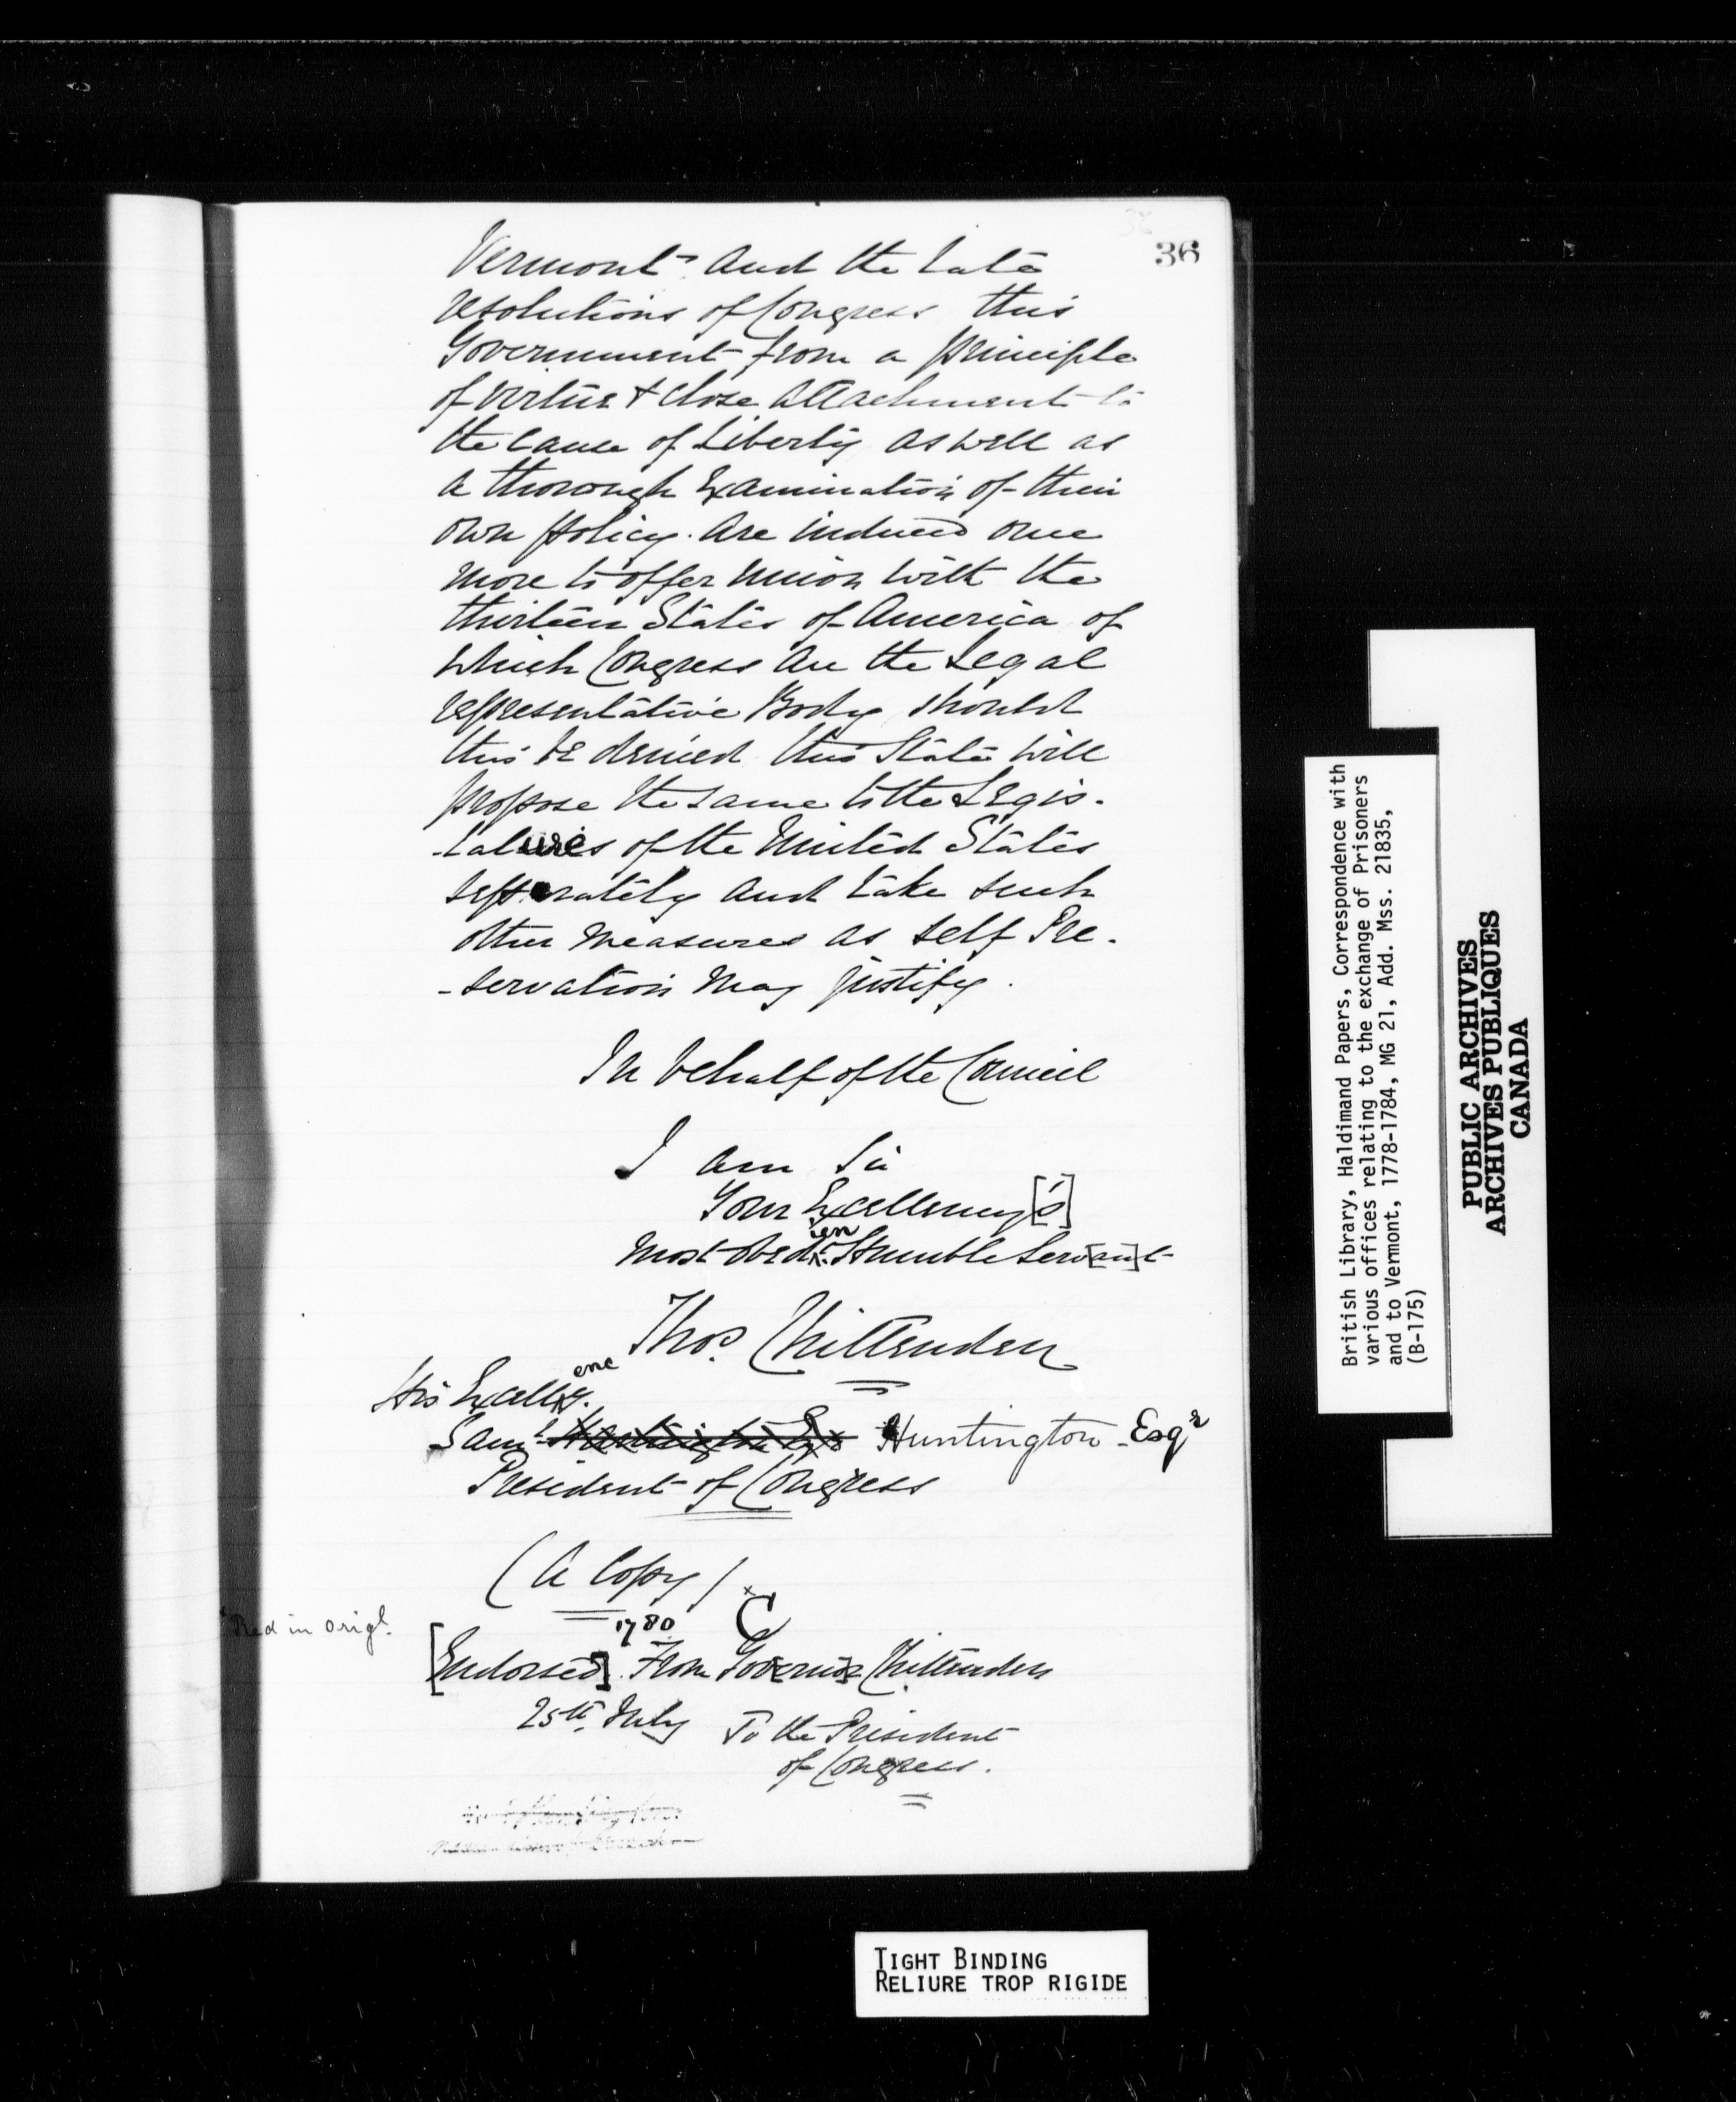 36
Vermont and the Late
resolutions of Congress this
Government from a principle
of virtue & close attachment to
the cause of Liberty as well as
a thorough Examination of their
own policy. are induced once
more to offer union with the
thirteen States of America of
which Congress are the Legal
representative Body, should
this be denied this State will
propose the same to the Legis-
-latures of the United States
seperately and take such
other measures as self Pre-
-servation may justify.
In behalf of the Council
I am Sir
Your Excellency[']s
ien
most obedt. Humble Serv[an]t
Thos. Chittenden
enc
His Excelly.
Saml. Huntington Esqr
President of Congress
(A Copy)
Red in origl.
1780 x C
[Endorsed] From Gov[erno]r Chittenden
25th. July To the President
of Congress.
British Library, Haldimand Papers, Correspondence with
various offices relating to the exchange of Prisoners
and to Vermont, 1778-1784, MG 21, Add. Mss. 21835,
(B-175)
PUBLIC ARCHIVES
ARCHIVES PUBLIQUES
CANADA
TIGHT BINDING
RELIURE TROP RIGIDE